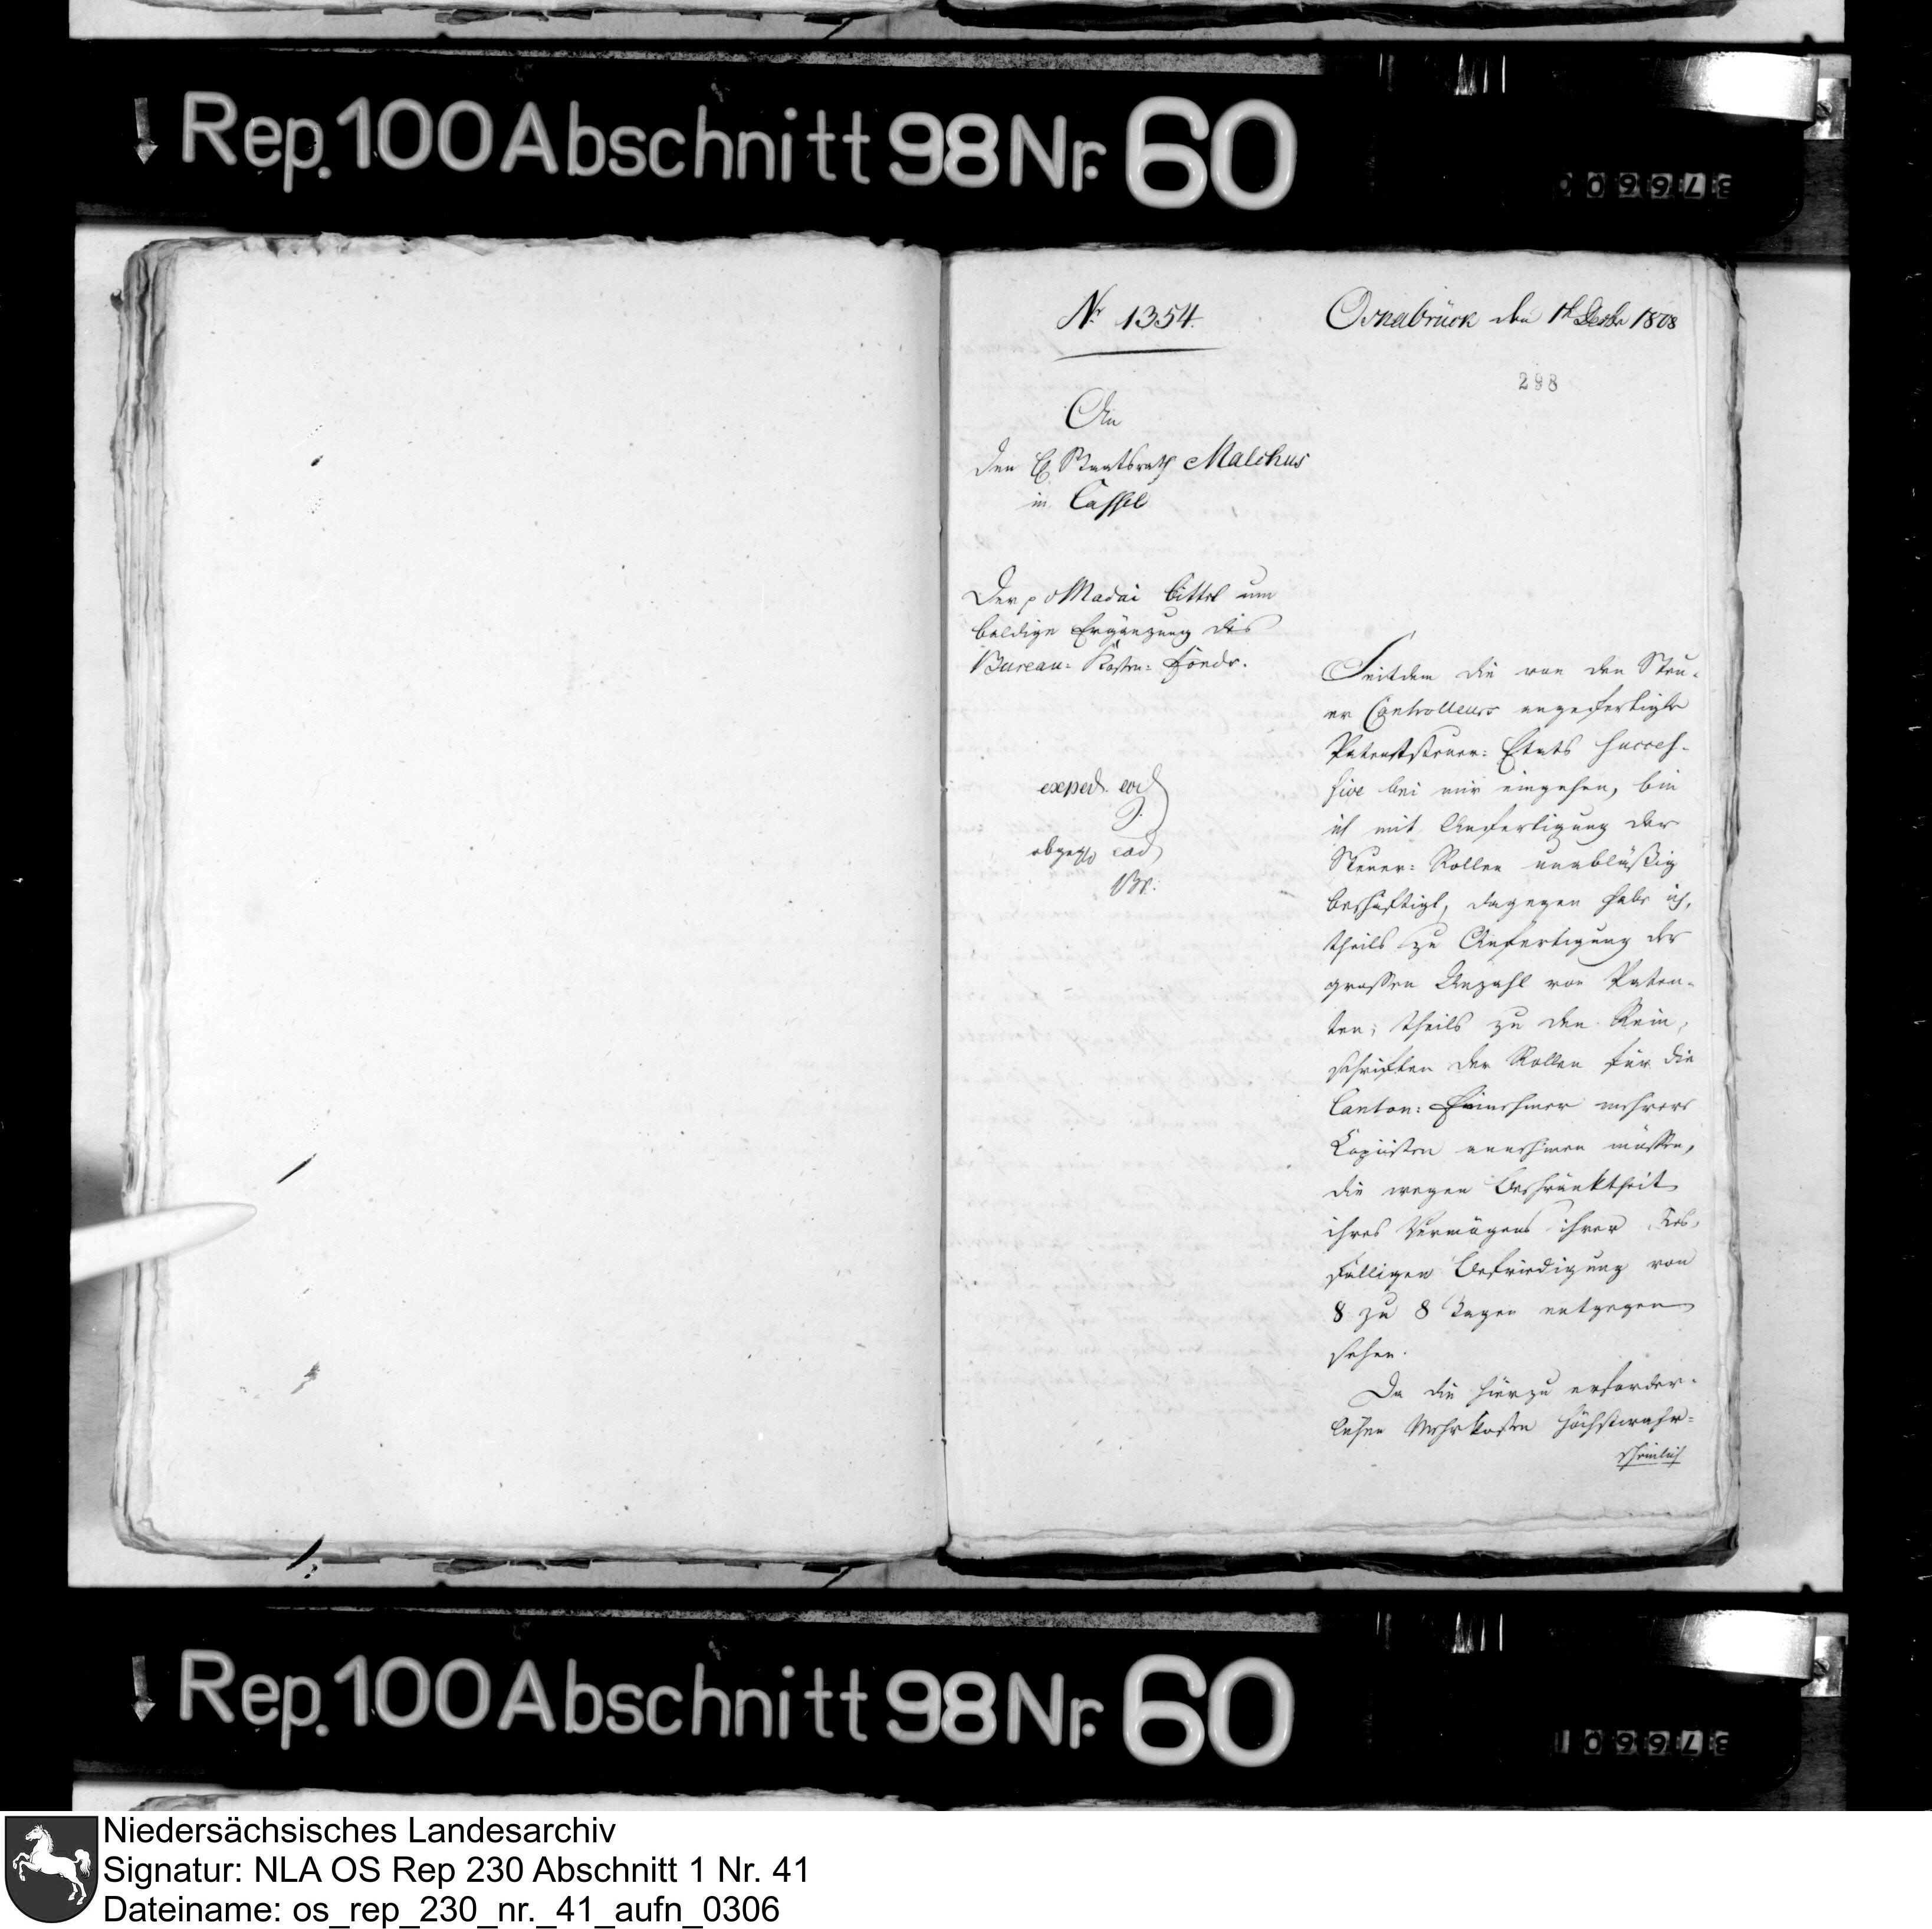 Rep. 100 Abschnitt 98 Nr. 60
Nr 1354.
Osnabrück den 1t Decbr 1808
298
An
den H Staatsrath Malchus
in Cassel
Der p Madai bittet um
baldige Ergänzung des
Bureau-Kosten-Fonds.
exped. eod
abgeg. eod
Br.
Seitdem die von den Steu-
er Controlleurs angefertigte
Patentsteuer-Etats succes-
sive bei mir eingehen, bin
ich mit Anfertigung der
Steuer-Rollen unabläßig
beschäftigt, dagegen habe ich,
theils zu Anfertigung der
grossen Anzahl von Paten-
ten; theils zu den Rein-
schriften der Rollen für die
Canton-Einnehmer mehrere
Copiisten annehmen müssen,
die wegen Beschränktheit
ihres Vermögens ihrer
fälligen Befriedigung von
8 zu 8 Tagen entgegen
sehen.
Da die hierzu erforder-
lichen Mehrkosten höchstwahr-
scheinlich
Rep. 100 Abschnitt 98 Nr. 60
Niedersächsisches Landesarchiv
Signatur: NLA OS Rep 230 Abschnitt 1 Nr. 41
Dateiname: os_rep_230_nr._41_aufn_0306